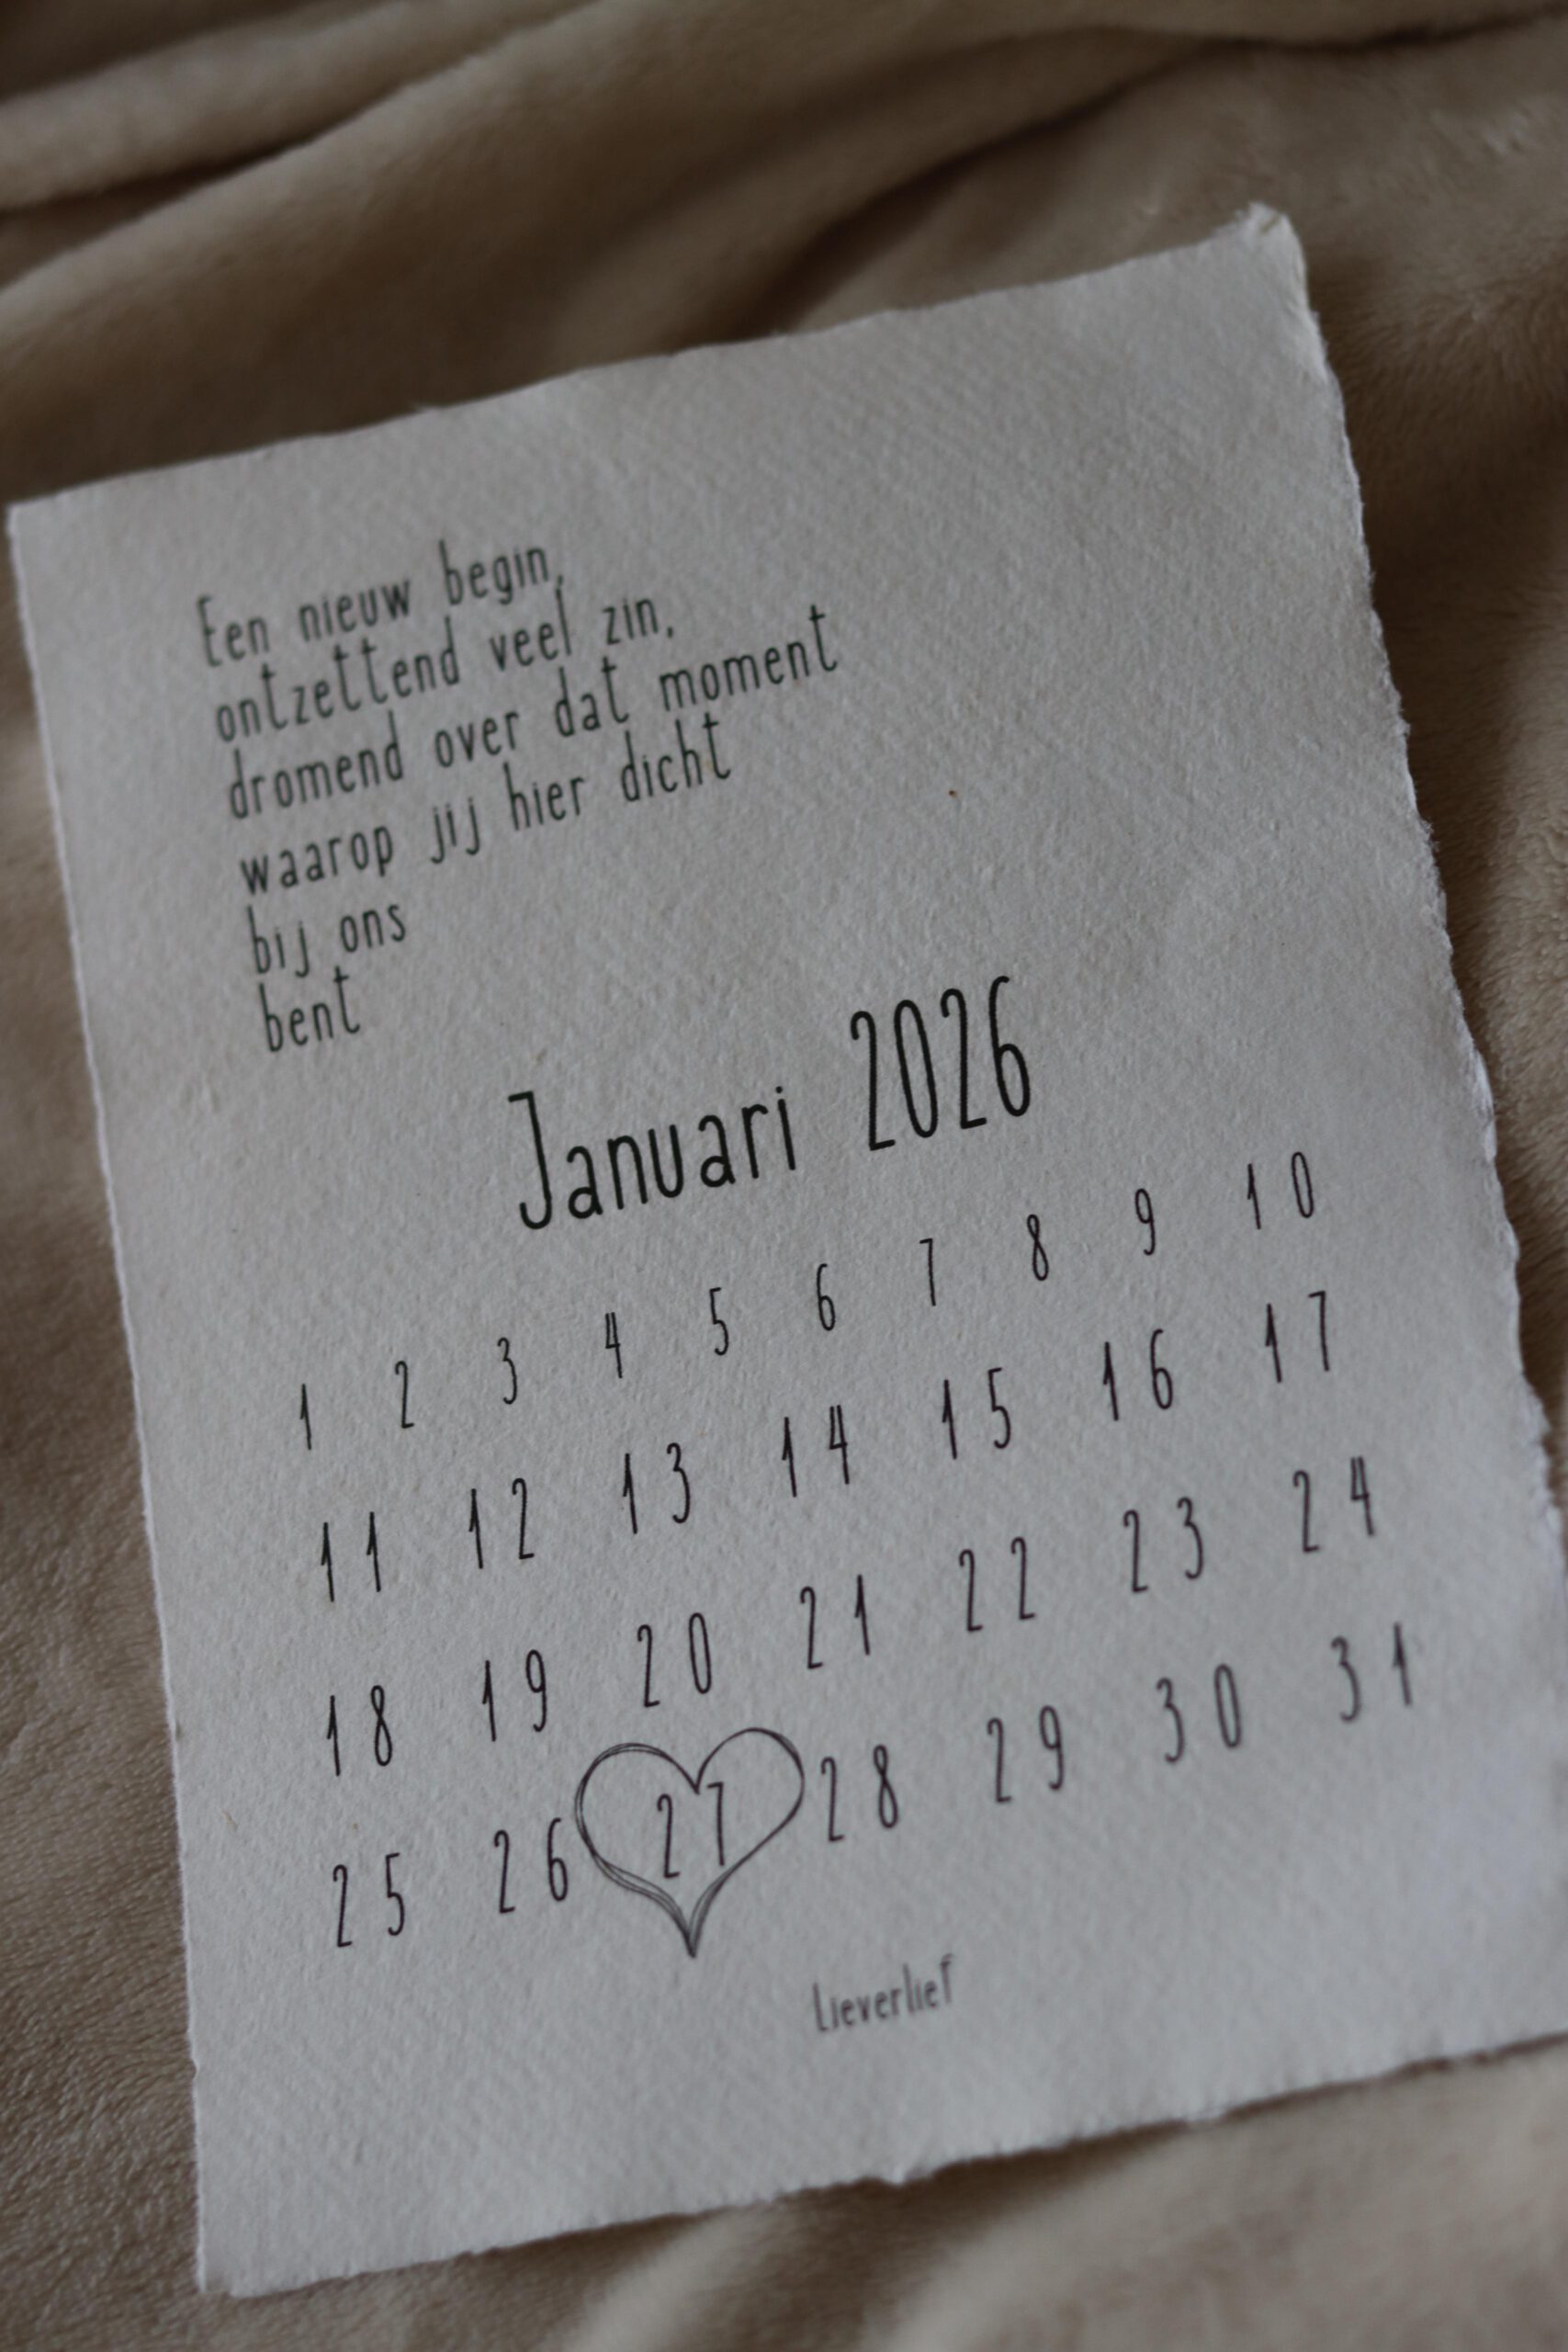 Een nieuw begin,
ontzettend veel zin,
dromend over dat moment
waarop jij hier dicht
bij ons
bent
Januari 2026
1 2 3 4 5 6 7 8 9 10
11 12 13 14 15 16 17
18 19 20 21 22 23 24
25 26 27 28 29 30 31
Lieverlief